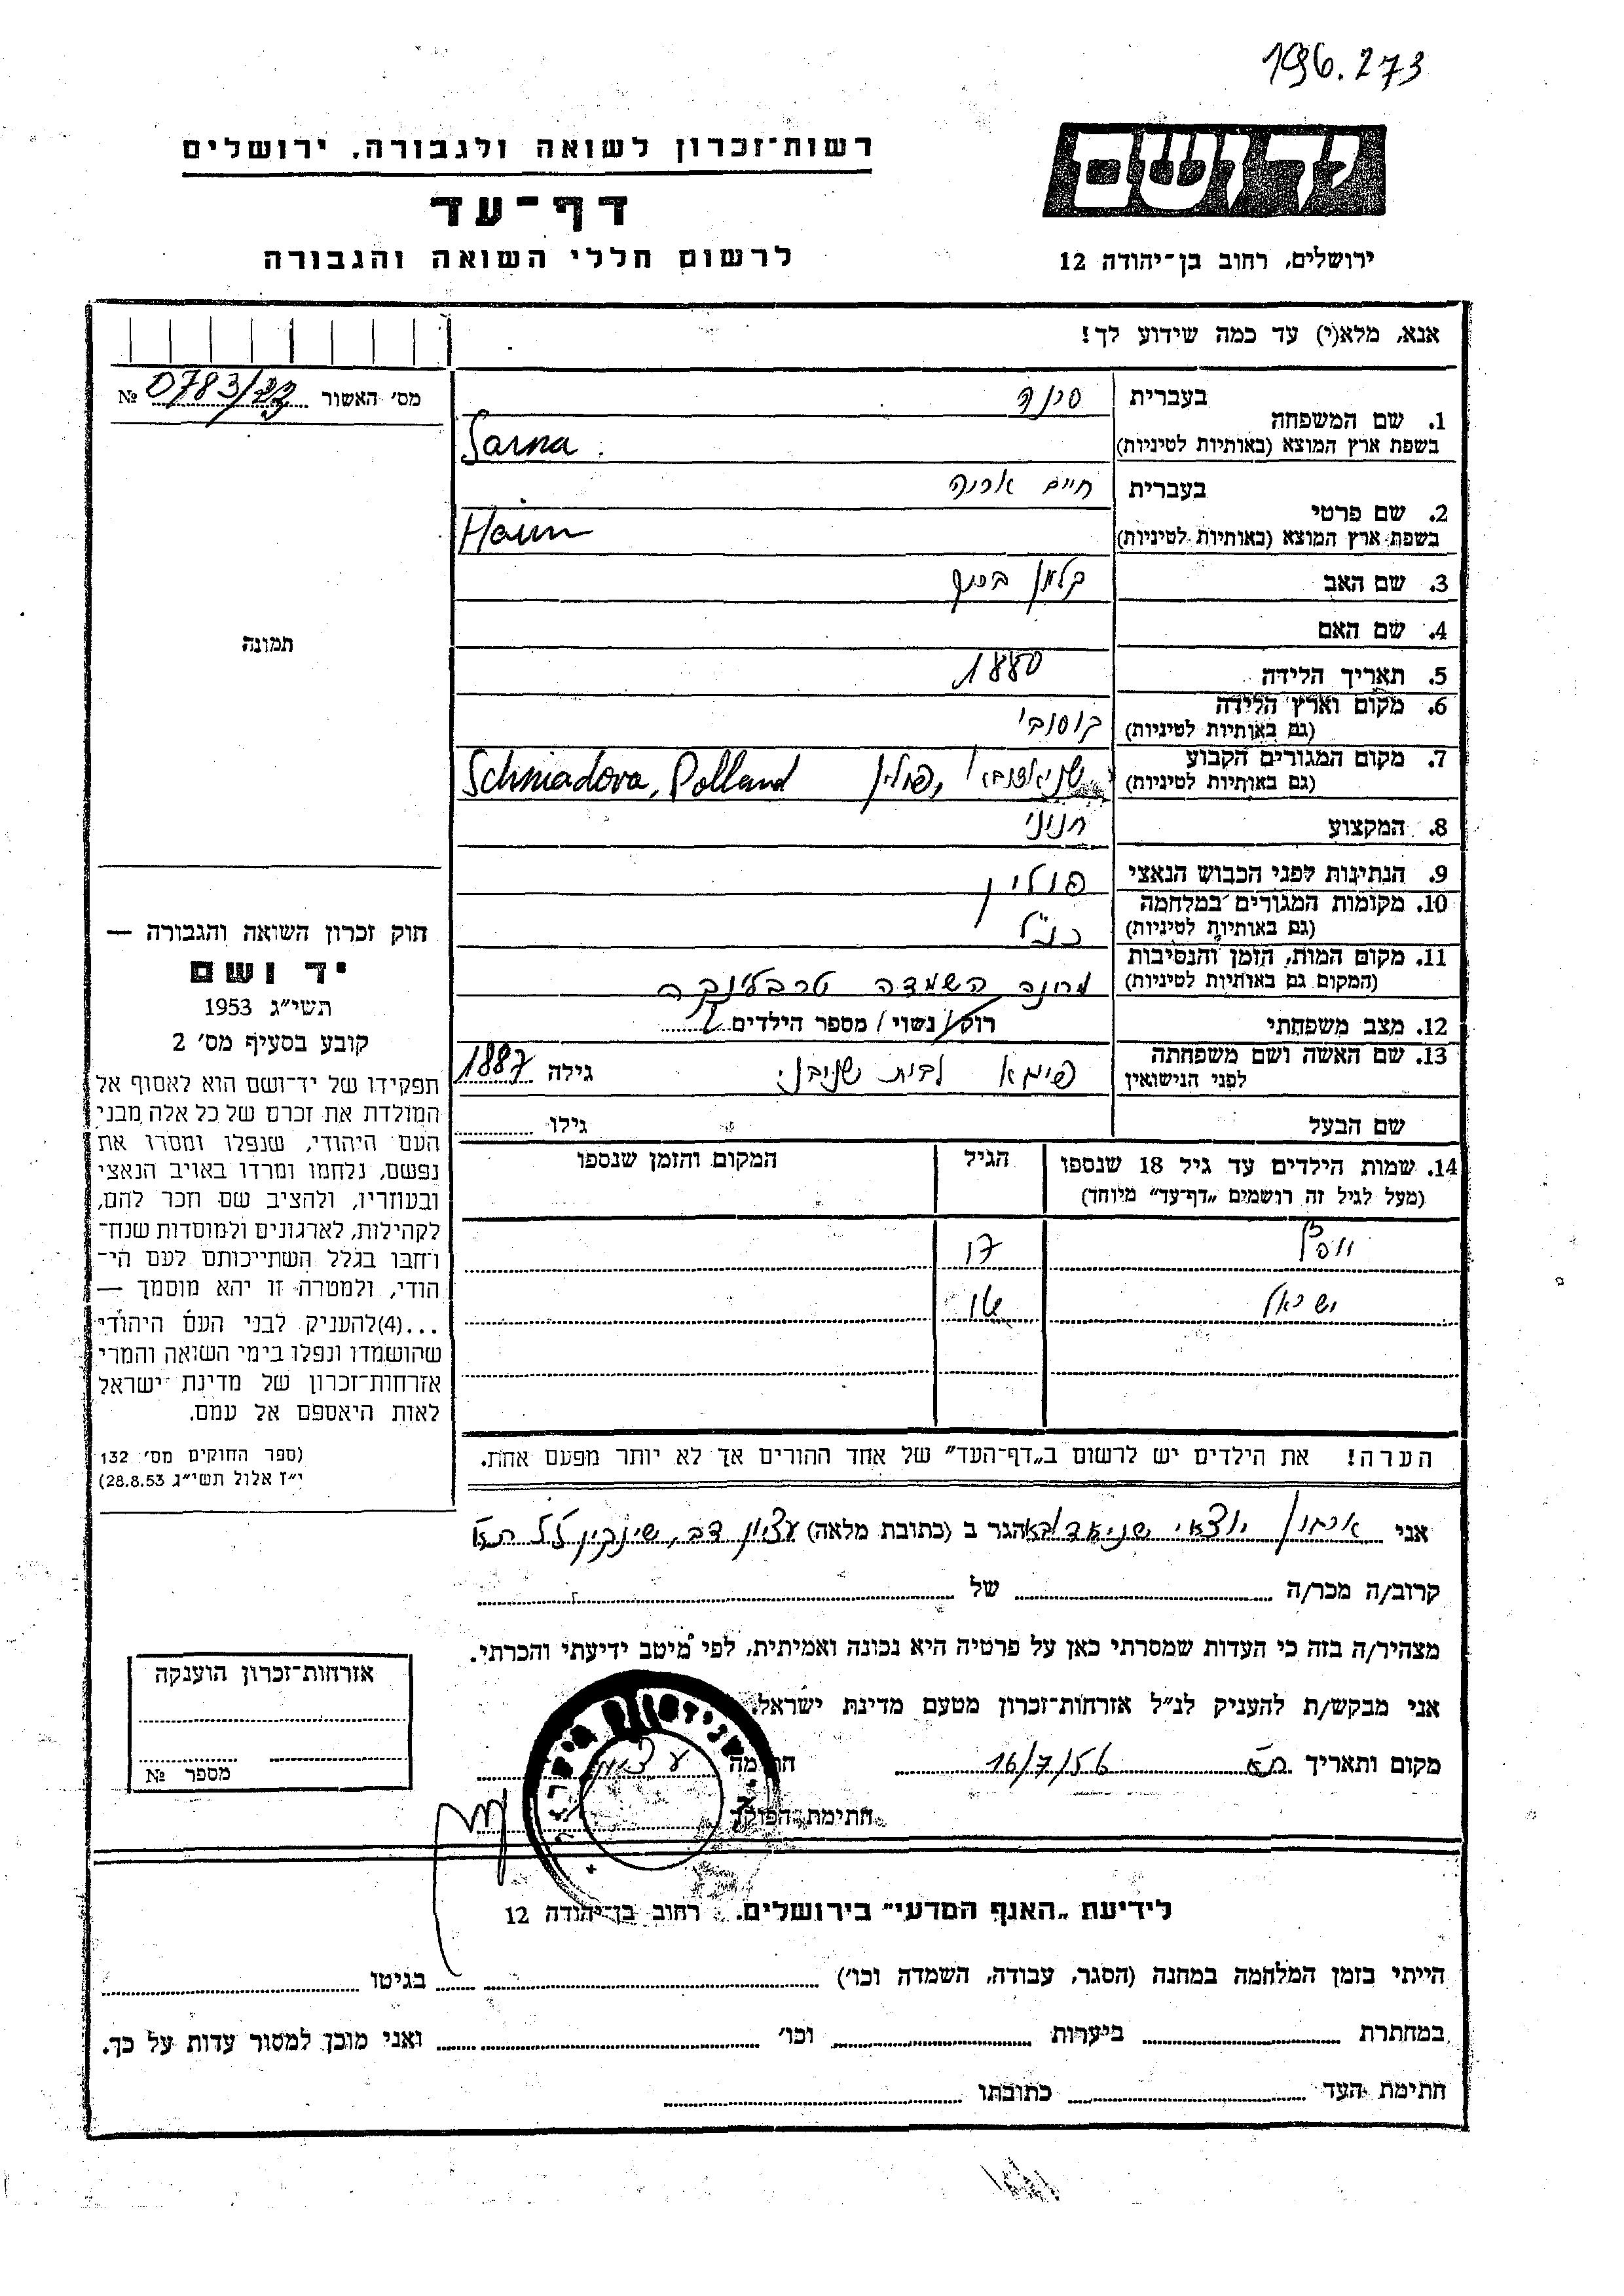 196.273
יד ושם
רשות־זכרון לשואה ולגבורה, ירושלים
דף־עד
לרשום חללי השואה והגבורה
ירושלים, רחוב בן־יהודה 12
אנא, מלא(י) עד כמה שידוע לך!
מס׳ האשור 0783/23 №
1. שם המשפחה
בעברית סרנה
בשפת ארץ המוצא (באותיות לטיניות) Sarna
2. שם פרטי
בעברית חיים
בשפת ארץ המוצא (באותיות לטיניות) Haim
3. שם האב קלמן
4. שם האם
5. תאריך הלידה 1880
6. מקום וארץ הלידה
(גם באותיות לטיניות)
7. מקום המגורים הקבוע
(גם באותיות לטיניות) שניאדובא, פולין Schniadova, Polland
8. המקצוע חנוני
9. הנתינות לפני הכבוש הנאצי פולין
10. מקומות המגורים במלחמה
(גם באותיות לטיניות) כנ״ל
11. מקום המות, הזמן והנסיבות
(המקום גם באותיות לטיניות) מחנה השמדה טרבלינקה
12. מצב משפחתי רוק/נשוי/מספר הילדים
13. שם האשה ושם משפחתה
לפני הנישואין לבית גילה 1887
שם הבעל גילו
14. שמות הילדים עד גיל 18 שנספו
(מעל לגיל זה רושמים „דף־עד״ מיוחד)
הגיל
המקום והזמן שנספו
יוסף 17
ישראל
הערה! את הילדים יש לרשום ב„דף־העד״ של אחד ההורים אך לא יותר מפעם אחת.
תמונה
חוק זכרון השואה והגבורה —
יד ושם
תשי״ג 1953
קובע בסעיף מס׳ 2
תפקידו של יד־ושם הוא לאסוף אל
המולדת את זכרם של כל אלה מבני
העם היהודי, שנפלו ומסרו את
נפשם, נלחמו ומרדו באויב הנאצי
ובעוזריו, ולהציב שם וזכר להם,
לקהילות, לארגונים ולמוסדות שנח־
רחבו בגלל השתייכותם לעם הי־
הודי, ולמטרה זו יהא מוסמך —
...(4)להעניק לבני העם היהודי
שהושמדו ונפלו בימי השואה והמרי
אזרחות־זכרון של מדינת ישראל
לאות היאספם אל עמם.
(ספר החוקים מס׳ 132
י״ז אלול תשי״ג 28.8.53)
אני ארגון יוצאי שניאדובא הגר ב (כתובת מלאה) עציון דב, שינקין ת״א
קרוב/ה מכר/ה של
מצהיר/ה בזה כי העדות שמסרתי כאן על פרטיה היא נכונה ואמיתית, לפי מיטב ידיעתי והכרתי.
אני מבקש/ת להעניק לנ״ל אזרחות־זכרון מטעם מדינת ישראל.
מקום ותאריך ת״א 16/7/56 חתימה
חתימת הפוקד
אזרחות־זכרון הוענקה
מספר №
לידיעת „האגף המדעי״ בירושלים, רחוב בן־יהודה 12
הייתי בזמן המלחמה במחנה (הסגר, עבודה, השמדה וכו׳) בגיטו
במחתרת ביערות וכו׳ ואני מוכן למסור עדות על כך.
חתימת העד כתובתו